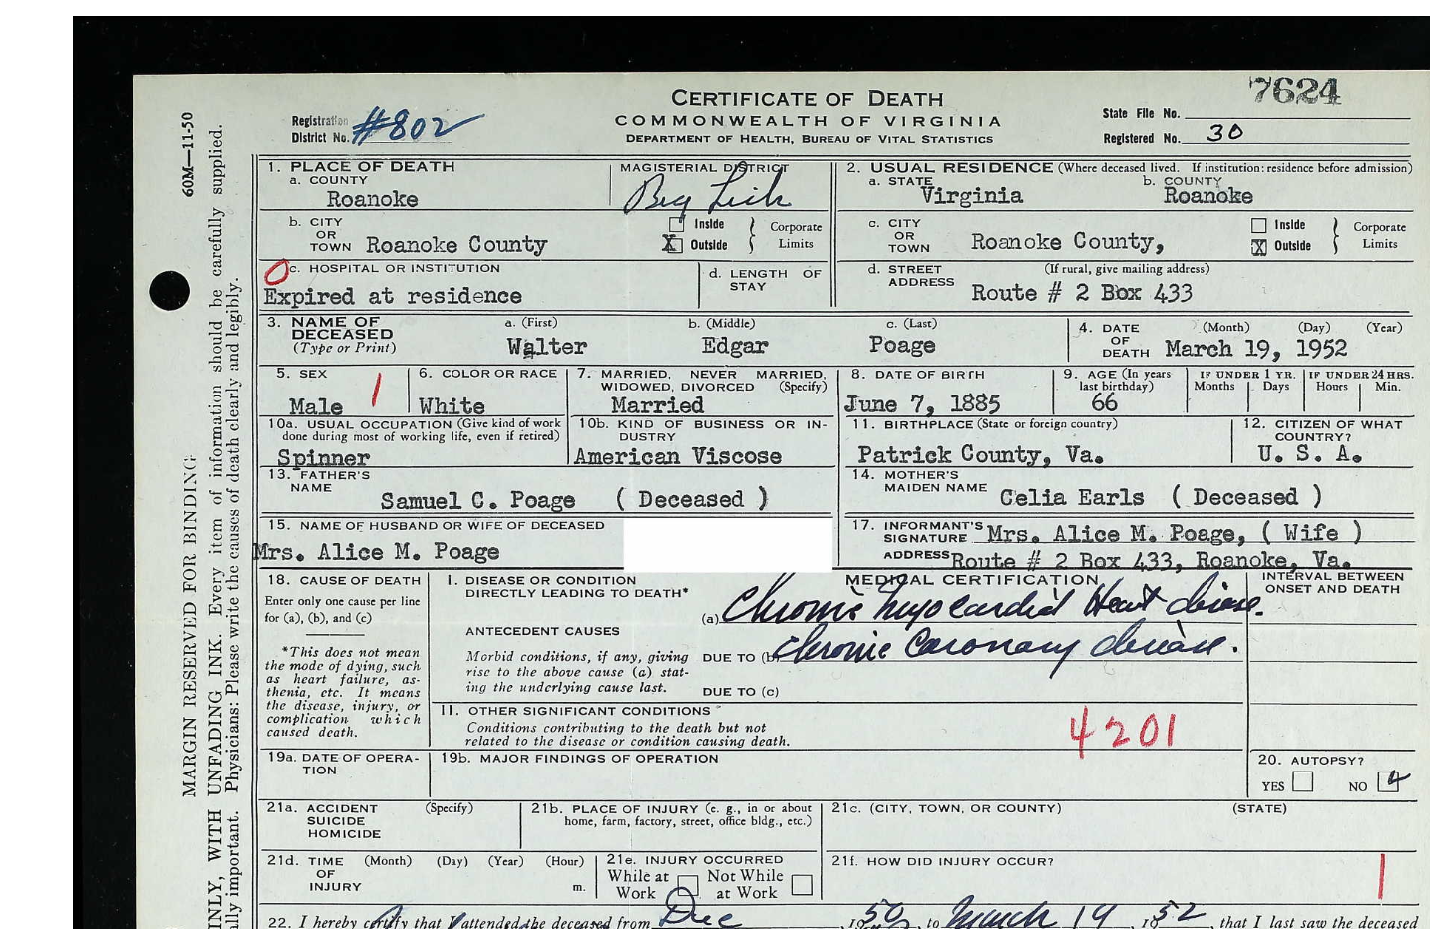 7624
CERTIFICATE OF DEATH
COMMONWEALTH OF VIRGINIA
DEPARTMENT OF HEALTH, BUREAU OF VITAL STATISTICS
Registration District No. #802
State File No.
Registered No. 30
60M—11-50
MARGIN RESERVED FOR BINDING
INLY, WITH UNFADING INK. Every item of information should be carefully supplied.
ally important. Physicians: Please write the causes of death clearly and legibly.
1. PLACE OF DEATH
a. COUNTY
Roanoke
MAGISTERIAL DISTRICT
Big Lick
2. USUAL RESIDENCE (Where deceased lived. If institution: residence before admission)
a. STATE
Virginia
b. COUNTY
Roanoke
b. CITY OR TOWN Roanoke County
Inside
X Outside
Corporate Limits
c. CITY OR TOWN Roanoke County,
Inside
X Outside
Corporate Limits
c. HOSPITAL OR INSTITUTION
Expired at residence
d. LENGTH OF STAY
d. STREET ADDRESS (If rural, give mailing address)
Route # 2 Box 433
3. NAME OF DECEASED
(Type or Print)
a. (First)
Walter
b. (Middle)
Edgar
c. (Last)
Poage
4. DATE OF DEATH
(Month) (Day) (Year)
March 19, 1952
5. SEX
Male
6. COLOR OR RACE
White
7. MARRIED, NEVER MARRIED, WIDOWED, DIVORCED (Specify)
Married
8. DATE OF BIRTH
June 7, 1885
9. AGE (In years last birthday)
66
IF UNDER 1 YR.
Months Days
IF UNDER 24 HRS.
Hours Min.
10a. USUAL OCCUPATION (Give kind of work done during most of working life, even if retired)
Spinner
10b. KIND OF BUSINESS OR INDUSTRY
American Viscose
11. BIRTHPLACE (State or foreign country)
Patrick County, Va.
12. CITIZEN OF WHAT COUNTRY?
U. S. A.
13. FATHER'S NAME
Samuel C. Poage ( Deceased )
14. MOTHER'S MAIDEN NAME
Celia Earls ( Deceased )
15. NAME OF HUSBAND OR WIFE OF DECEASED
Mrs. Alice M. Poage
17. INFORMANT'S SIGNATURE Mrs. Alice M. Poage, ( Wife )
ADDRESS Route # 2 Box 433, Roanoke, Va.
18. CAUSE OF DEATH
Enter only one cause per line for (a), (b), and (c)
*This does not mean the mode of dying, such as heart failure, asthenia, etc. It means the disease, injury, or complication which caused death.
MEDICAL CERTIFICATION
INTERVAL BETWEEN ONSET AND DEATH
I. DISEASE OR CONDITION DIRECTLY LEADING TO DEATH*
(a) Chronic myocardial Heart disease.
ANTECEDENT CAUSES
Morbid conditions, if any, giving rise to the above cause (a) stating the underlying cause last.
DUE TO (b) Chronic Coronary disease.
DUE TO (c)
II. OTHER SIGNIFICANT CONDITIONS
Conditions contributing to the death but not related to the disease or condition causing death.
4201
19a. DATE OF OPERATION
19b. MAJOR FINDINGS OF OPERATION
20. AUTOPSY?
YES NO
21a. ACCIDENT SUICIDE HOMICIDE (Specify)
21b. PLACE OF INJURY (e. g., in or about home, farm, factory, street, office bldg., etc.)
21c. (CITY, TOWN, OR COUNTY) (STATE)
21d. TIME OF INJURY (Month) (Day) (Year) (Hour) m.
21e. INJURY OCCURRED
While at Work Not While at Work
21f. HOW DID INJURY OCCUR?
22. I hereby certify that I attended the deceased from Dec, 1950, to March 19, 1952, that I last saw the deceased